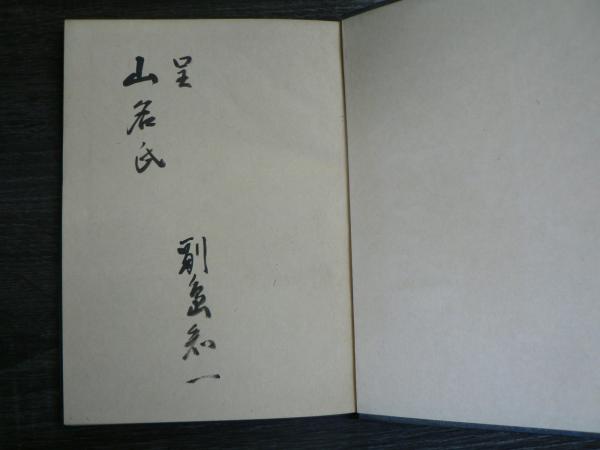 呈
山名氏
副島知一